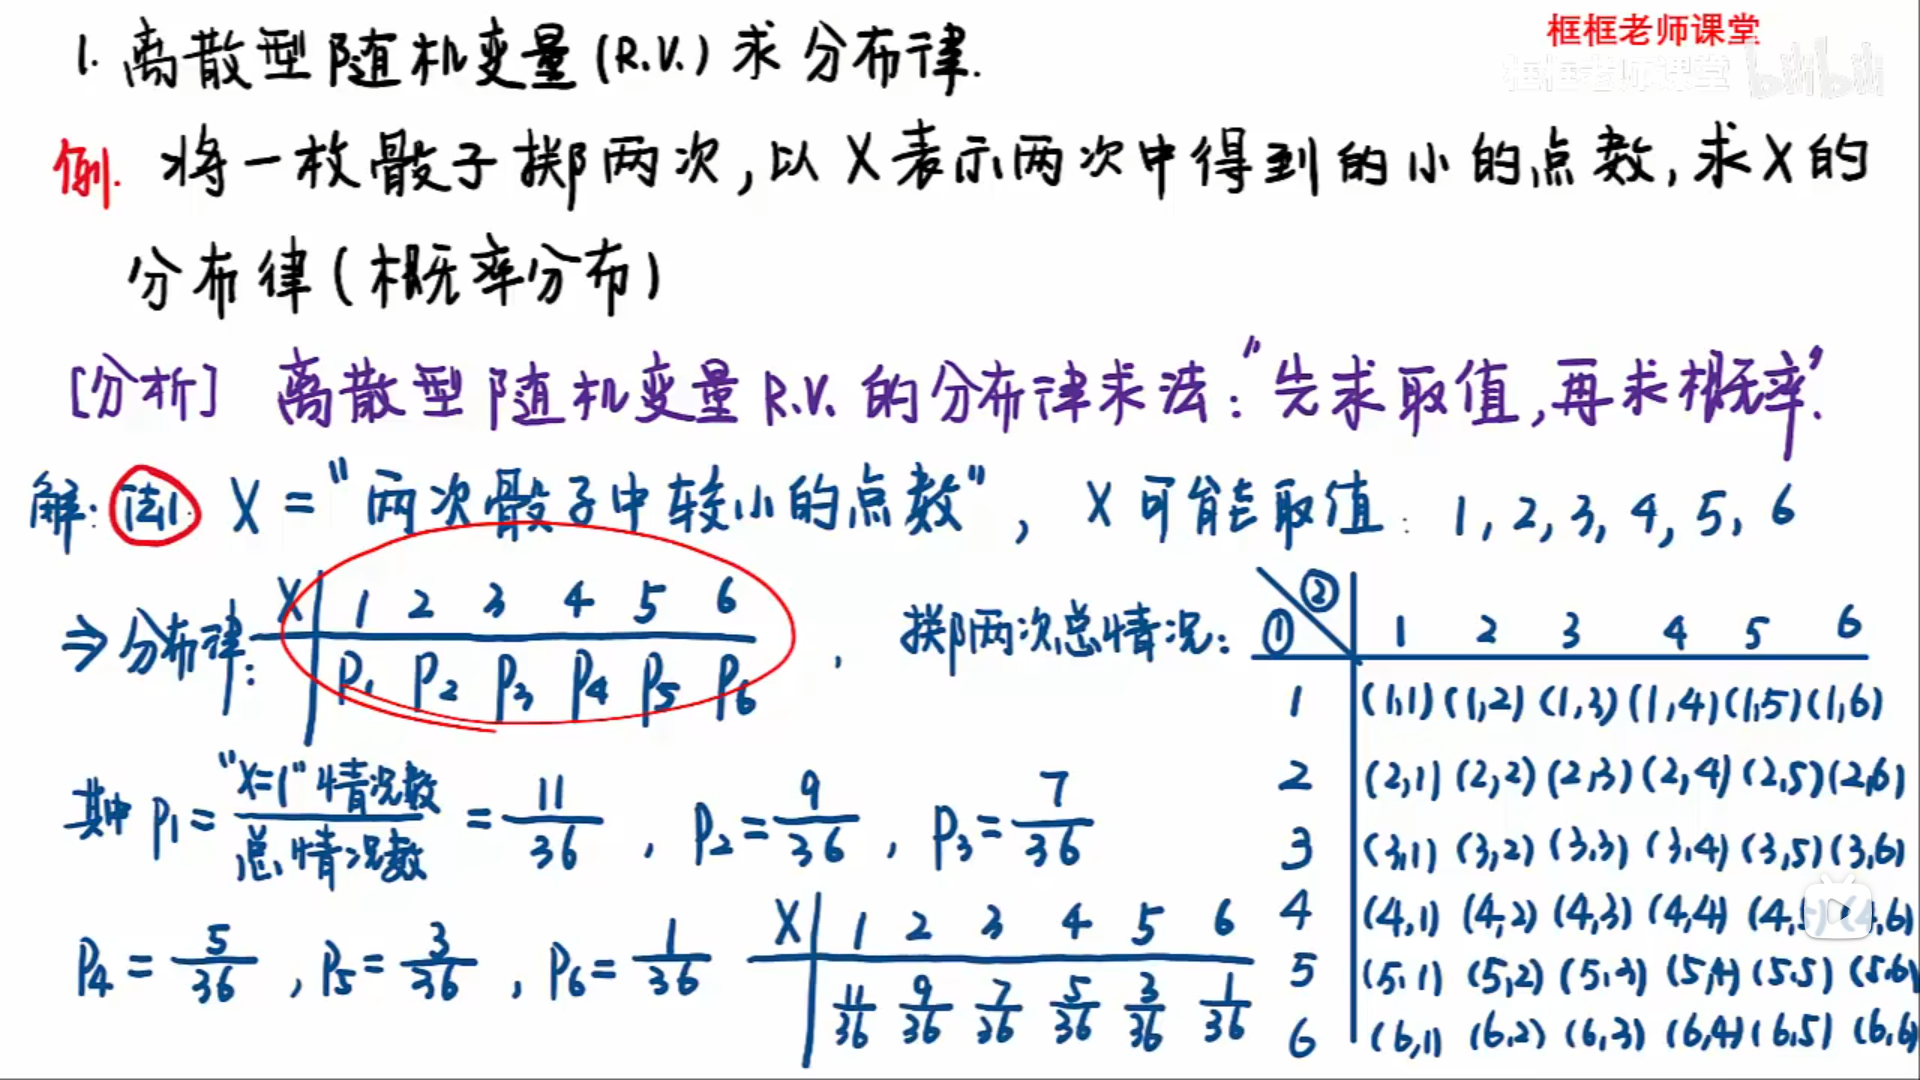 框框老师课堂
框框老师课堂 bilibili
1. 离散型随机变量(R.V.)求分布律.
例. 将一枚骰子掷两次,以X表示两次中得到的小的点数,求X的
分布律(概率分布)
[分析] 离散型随机变量R.V.的分布律求法:"先求取值,再求概率".
解: 法1. X="两次骰子中较小的点数", X可能取值: 1,2,3,4,5,6
⇒分布律: X 1 2 3 4 5 6
P₁ P₂ P₃ P₄ P₅ P₆ ,
掷两次总情况: ① ② 1 2 3 4 5 6
1 (1,1) (1,2) (1,3) (1,4) (1,5) (1,6)
2 (2,1) (2,2) (2,3) (2,4) (2,5) (2,6)
3 (3,1) (3,2) (3,3) (3,4) (3,5) (3,6)
4 (4,1) (4,2) (4,3) (4,4) (4,5) (4,6)
5 (5,1) (5,2) (5,3) (5,4) (5,5) (5,6)
6 (6,1) (6,2) (6,3) (6,4) (6,5) (6,6)
其中 P₁ = "X=1"情况数/总情况数 = 11/36 , P₂ = 9/36 , P₃ = 7/36
P₄ = 5/36 , P₅ = 3/36 , P₆ = 1/36
X 1 2 3 4 5 6
11/36 9/36 7/36 5/36 3/36 1/36